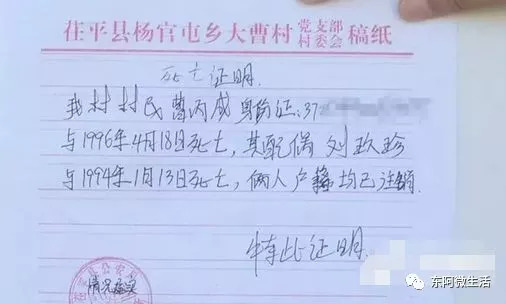 茌平县杨官屯乡大曹村党支部村委会稿纸
死亡证明
我村村民曹丙成身份证:37
与1996年4月18日死亡,其配偶刘玖珍
与1994年1月13日死亡,俩人户籍均已注销.
特此证明.
情况属实
东阿微生活